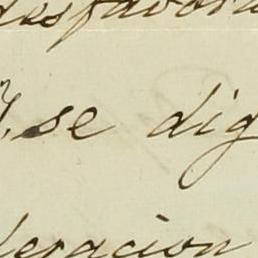 desfavora
se dig
leracion